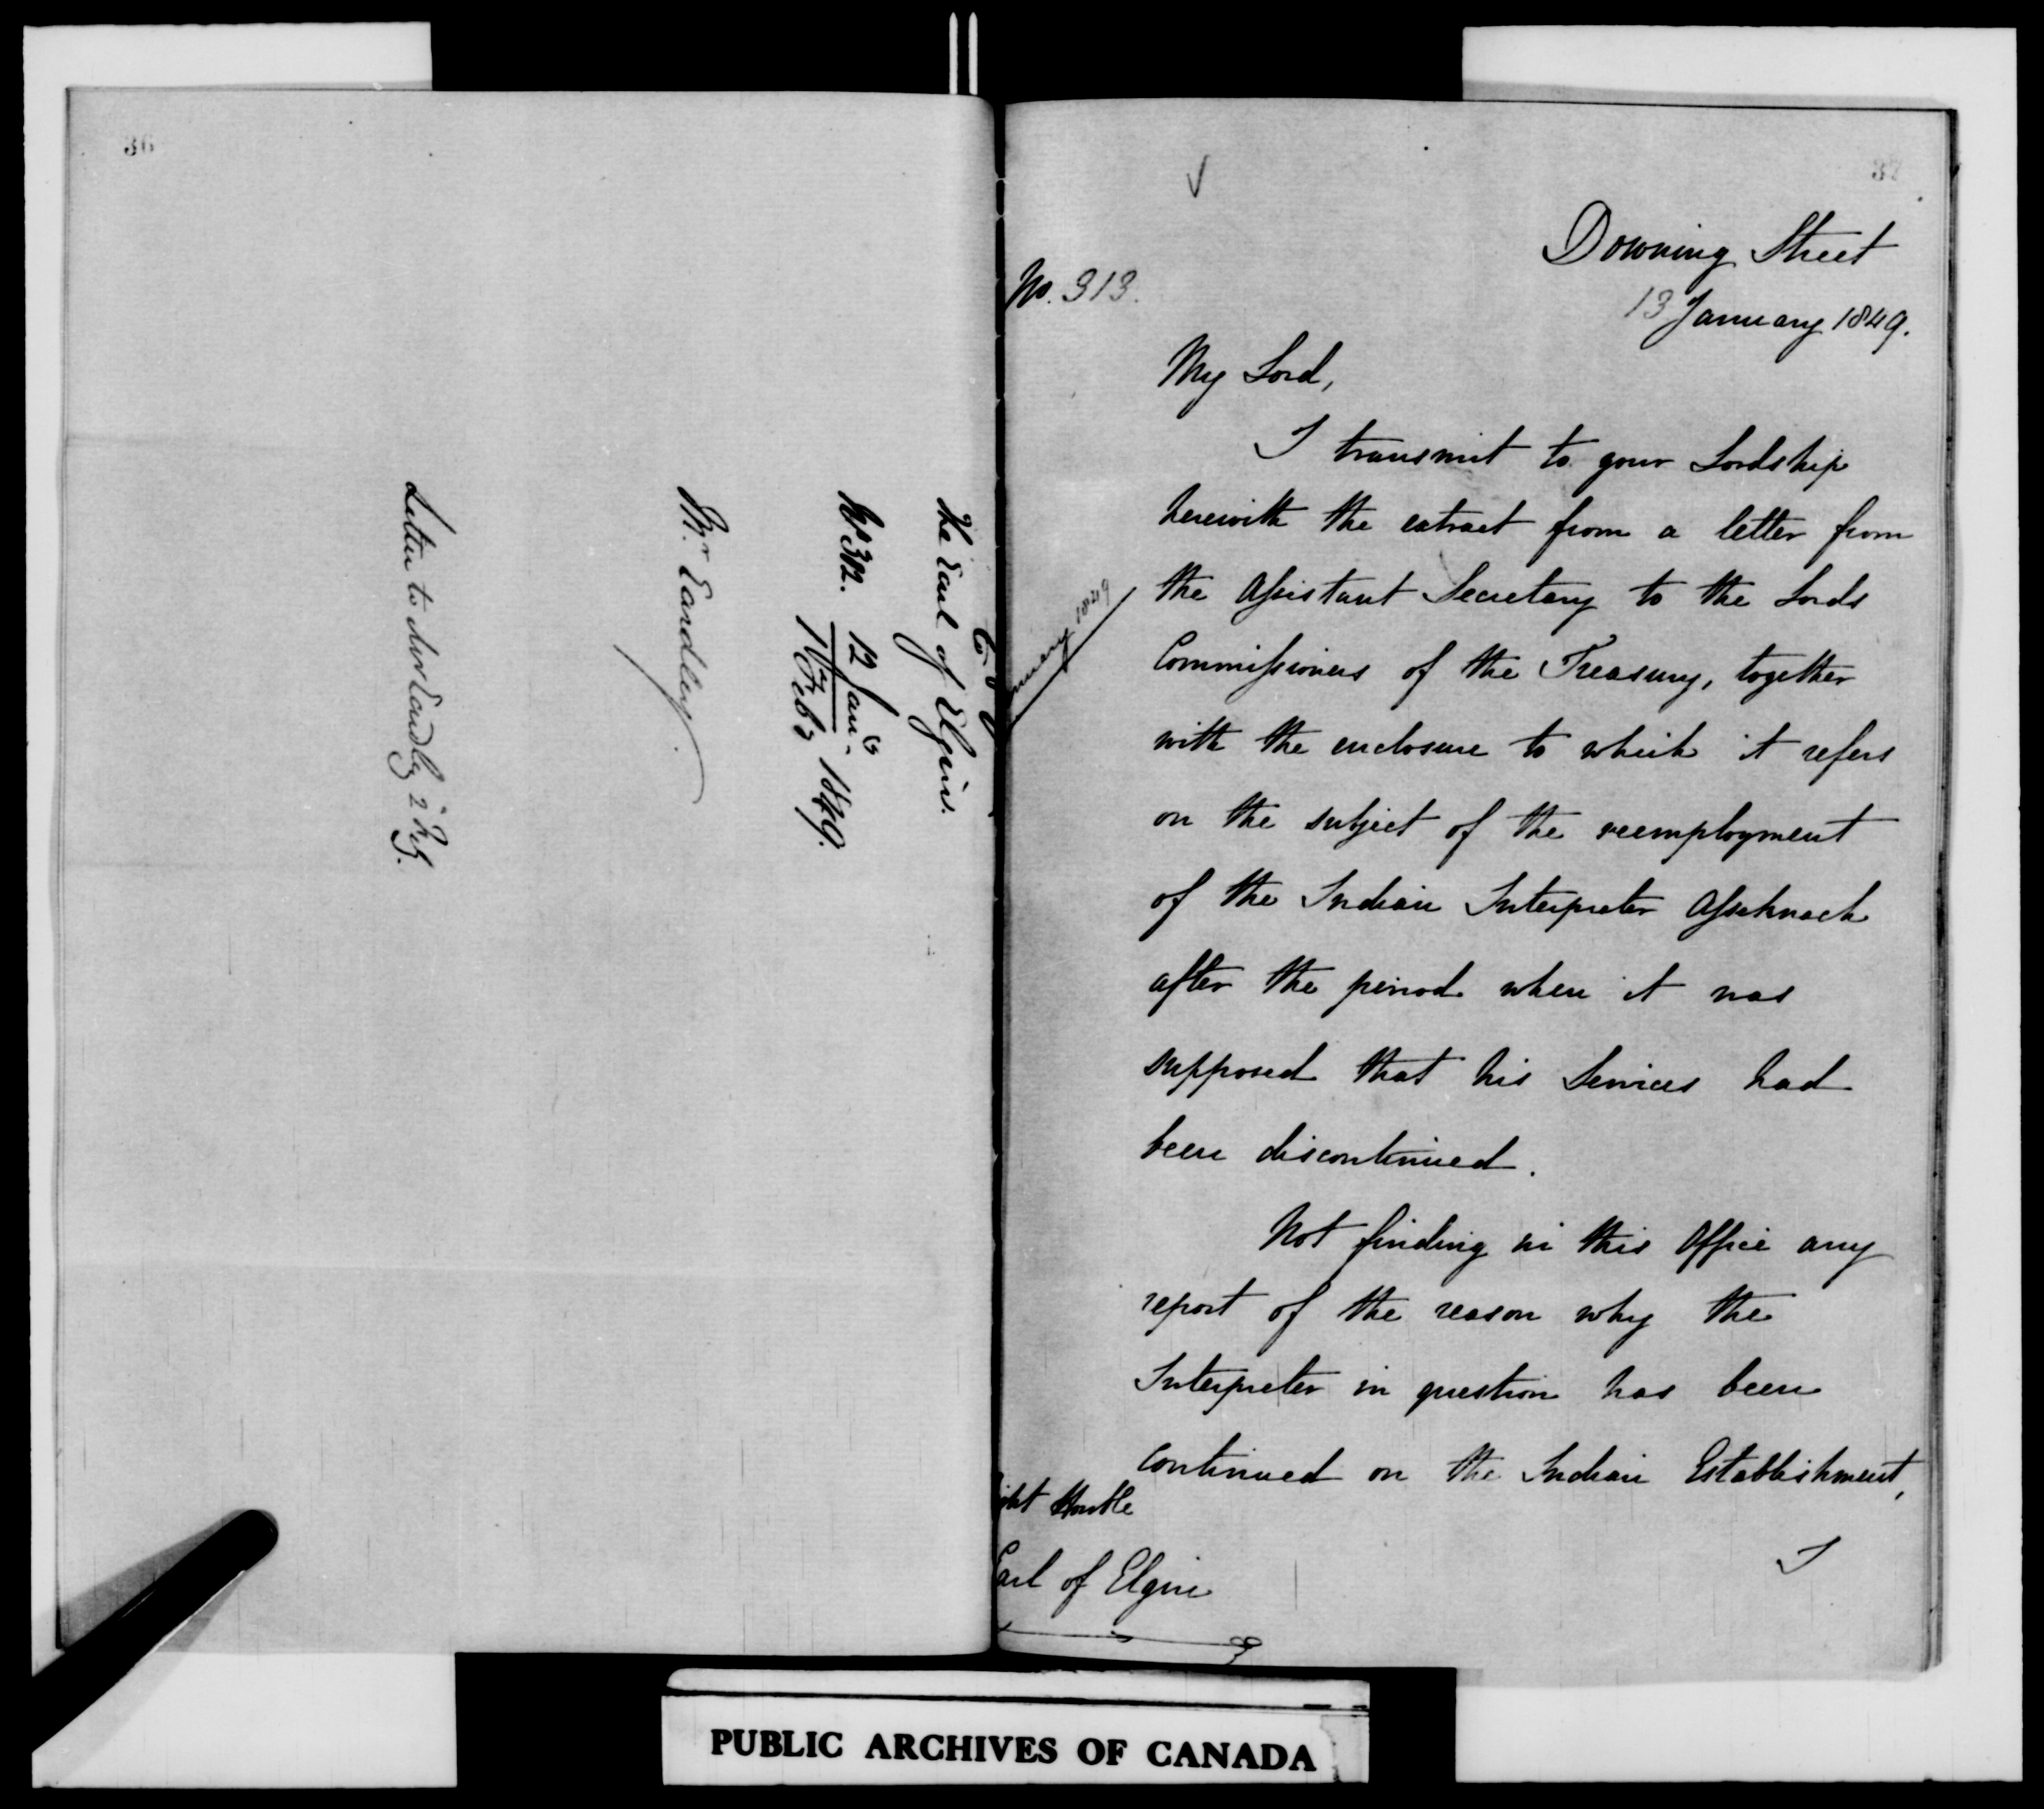 36
The Earl of Elgin.
No 312. 12 Jany 1849.
1 Feby
Mr. Eardley.
Letter to
37
Downing Street
No. 313.
13 January 1849.
My Lord,
I transmit to your Lordship
herewith the extract from a letter from
the Assistant Secretary to the Lords
Commissioners of the Treasury, together
with the enclosure to which it refers
on the subject of the reemployment
of the Indian Interpreter Assiknack
after the period when it was
supposed that his Services had
been discontinued.
Not finding in this Office any
report of the reason why the
Interpreter in question has been
continued on the Indian Establishment,
I
ight Honble
Earl of Elgin
1849
PUBLIC ARCHIVES OF CANADA